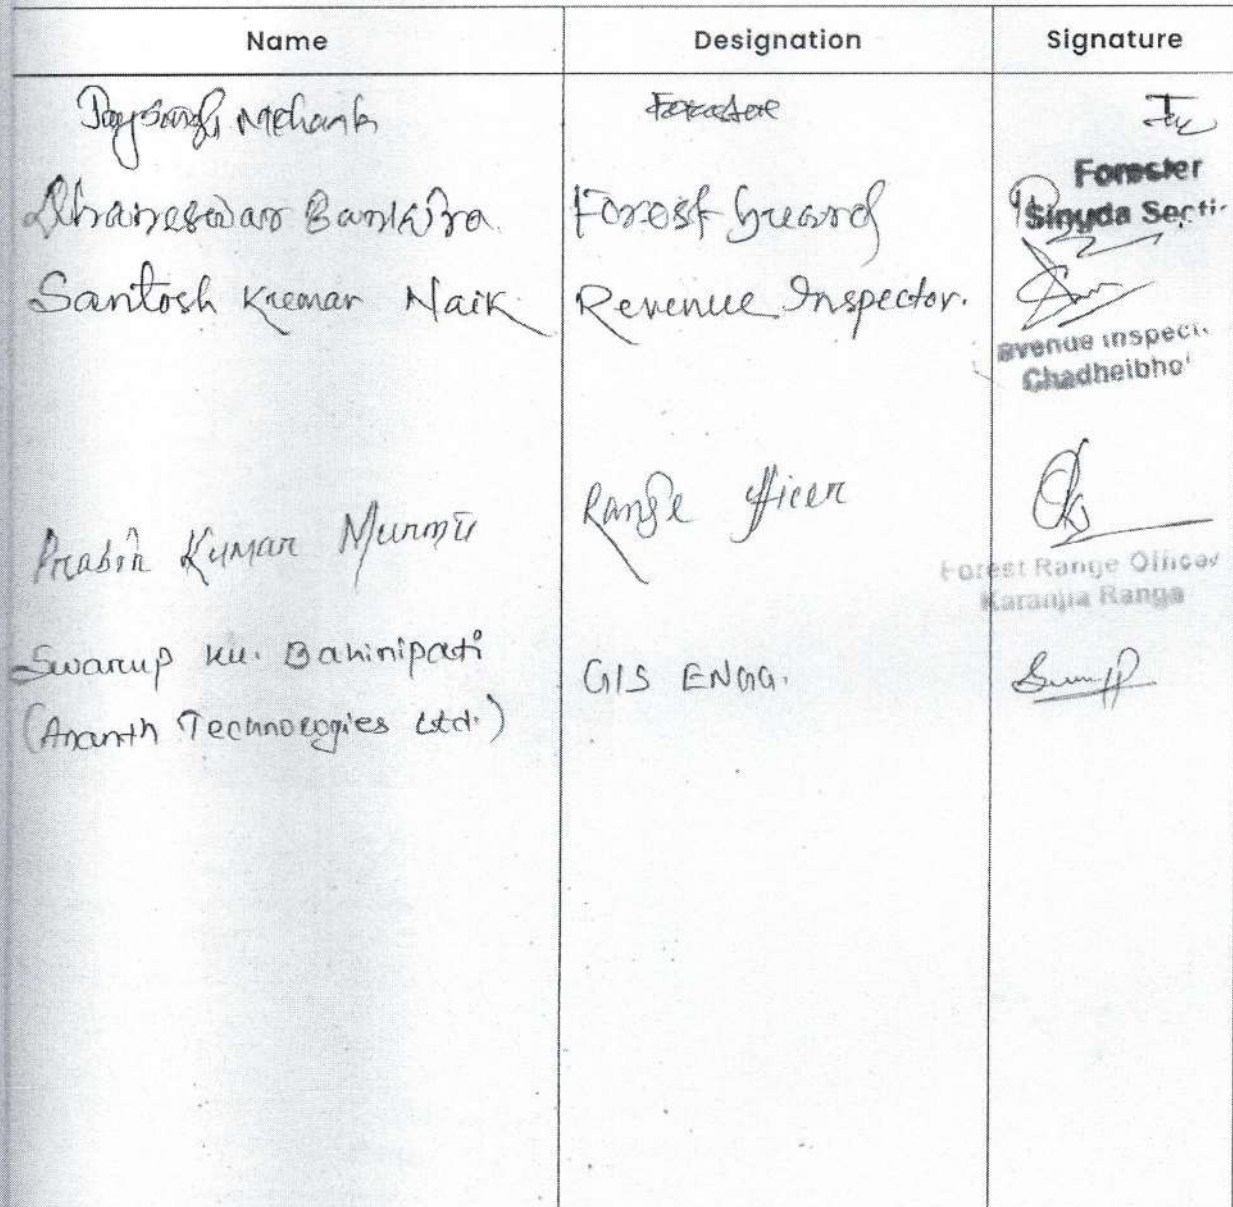 Name Designation Signature
Mohanta Forester
Forester
Dhaneswar Bankira Forest Guard
Singda Secti
Santosh Kumar Naik Revenue Inspector.
evenue Inspect
Chadheibho
Prabin Kumar Murmu Range fficer
Forest Range Officer
Karanjia Range
Swarup Ku. Bahinipati GIS ENGG.
(Ananth Technologies Ltd.)